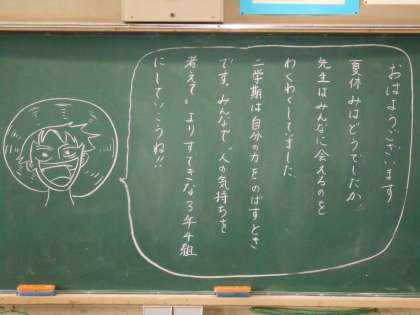 おはようございます
夏休みはどうでしたか。
先生はみんなに会えるのを
わくわくしていました
二学期は自分の力をのばすとき
です。みんなで、人の気持ちを
考えて、よりすてきな3年4組
にしていこうね!!